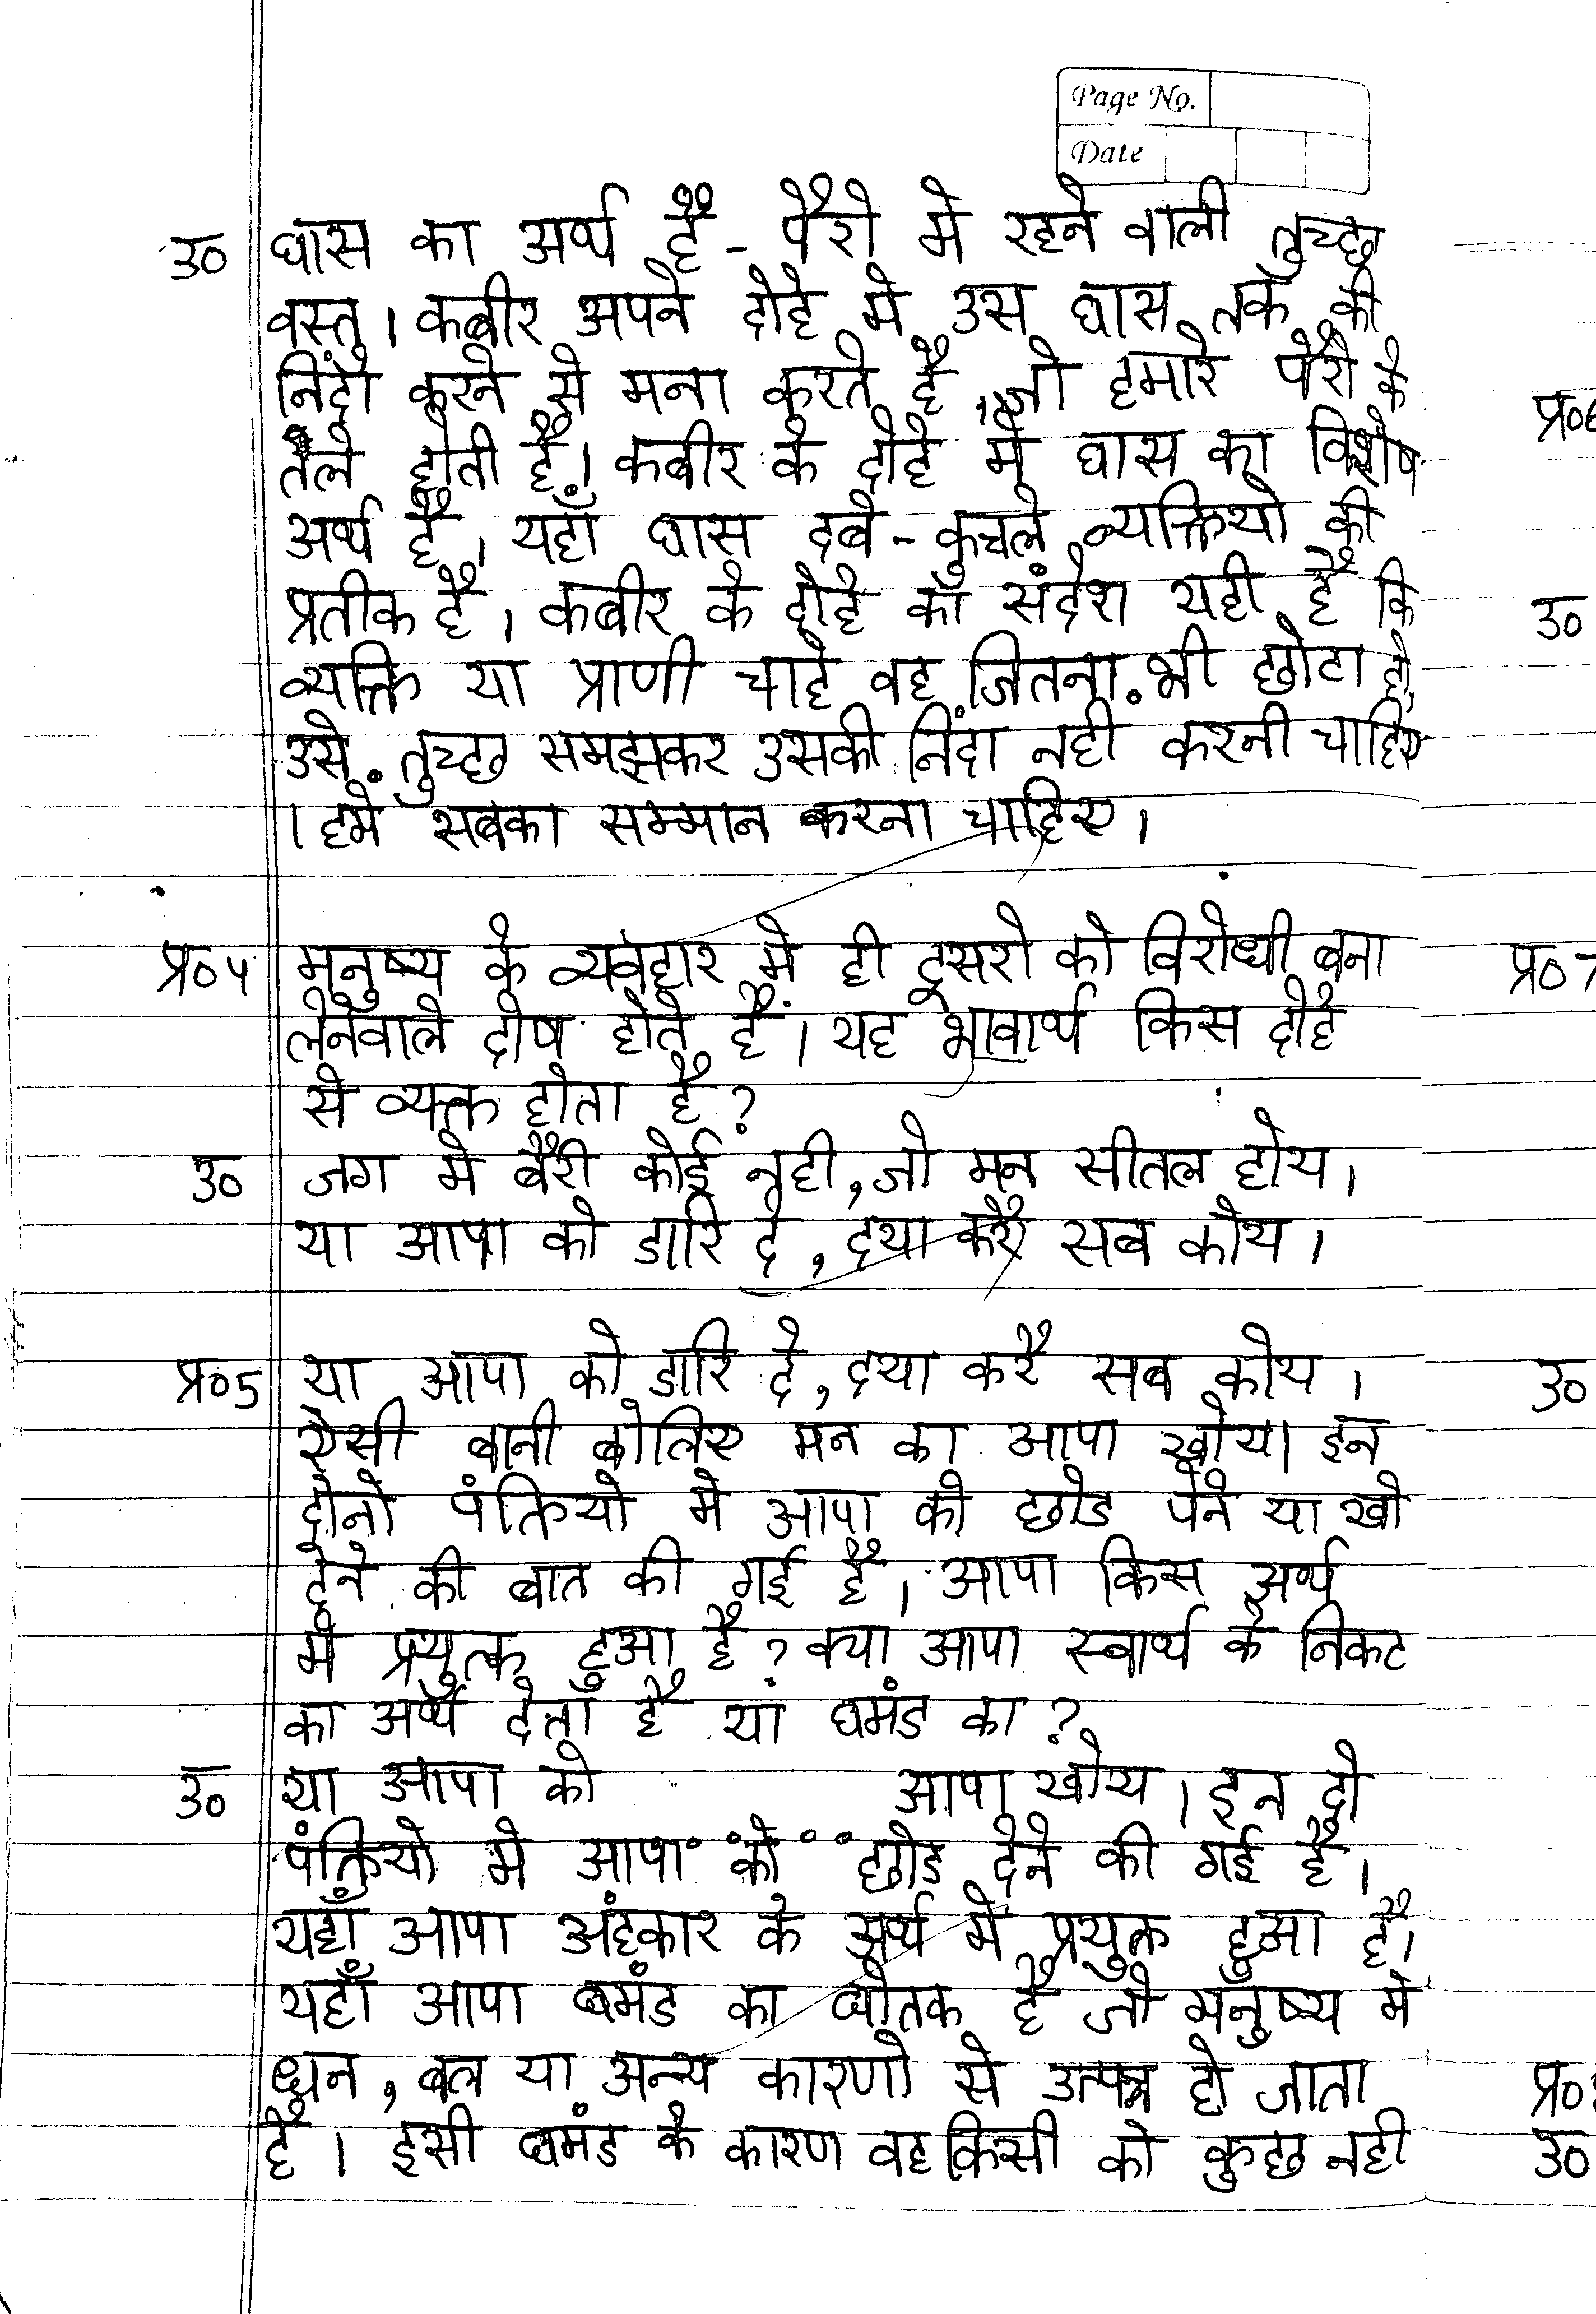 Page No.
Date
उ० घास का अर्थ है - पैरो मे रहने वाली तुच्छ
वस्तु। कबीर अपने दोहे मे उस घास तक की
निंदा करने से मना करते है, जो हमारे पैरो के
तले होती है। कबीर के दोहे मे घास का विशेष
अर्थ है। यहाँ घास दबे-कुचले व्यक्तियो की
प्रतीक है। कबीर के दोहे का संदेश यही है कि
व्यक्ति या प्राणी चाहे वह जितना भी छोटा हो,
उसे तुच्छ समझकर उसकी निंदा नही करनी चाहिए
। हमे सबका सम्मान करना चाहिए।
प्र०4 मनुष्य के व्यवहार मे ही दूसरो को विरोधी बना
लेनेवाले दोष होते हैं। यह भावार्थ किस दोहे
से व्यक्त होता है?
उ० जग मे बैरी कोई नही, जो मन सीतल होय।
या आपा को डारि दे, दया करै सब कोय।
प्र०5 या आपा को डारि दे, दया करै सब कोय।
ऐसी बानी बोलिए मन का आपा खोय। इन
दोनो पंक्तियो मे आपा को छोड पेने या खो
देने की बात की गई है। आपा किस अर्थ
मे प्रयुत्क हुआ है? क्या आपा स्वार्थ के निकट
का अर्थ देता है या घमंड का?
उ० या आपा को आपा खोय। इन दो
पंक्तियो मे आपा को छोड देने की गई है।
यहाँ आपा अंहकार के अर्थ मे प्रयुक्त हुआ है।
यहाँ आपा घमंड का घोतक है जो मनुष्य मे
धन, बल या अन्य कारणो से उत्पन्न हो जाता
है। इसी घमंड के कारण वह किसी को कुछ नही
प्र०6
उ०
प्र०7
उ०
प्र०
उ०